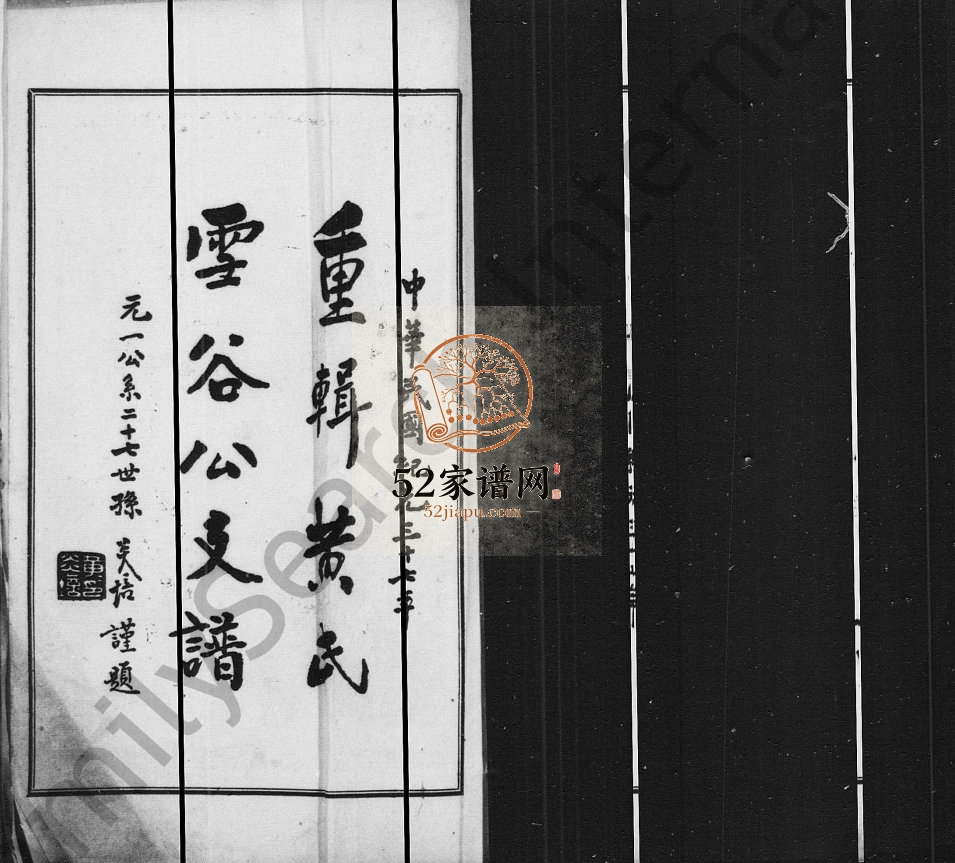 中華民國紀元三十七年
重輯黃氏
雪谷公支譜
元一公系二十七世孫 炎培 謹題
52家谱网
52jiapu.com
milySearch Interna